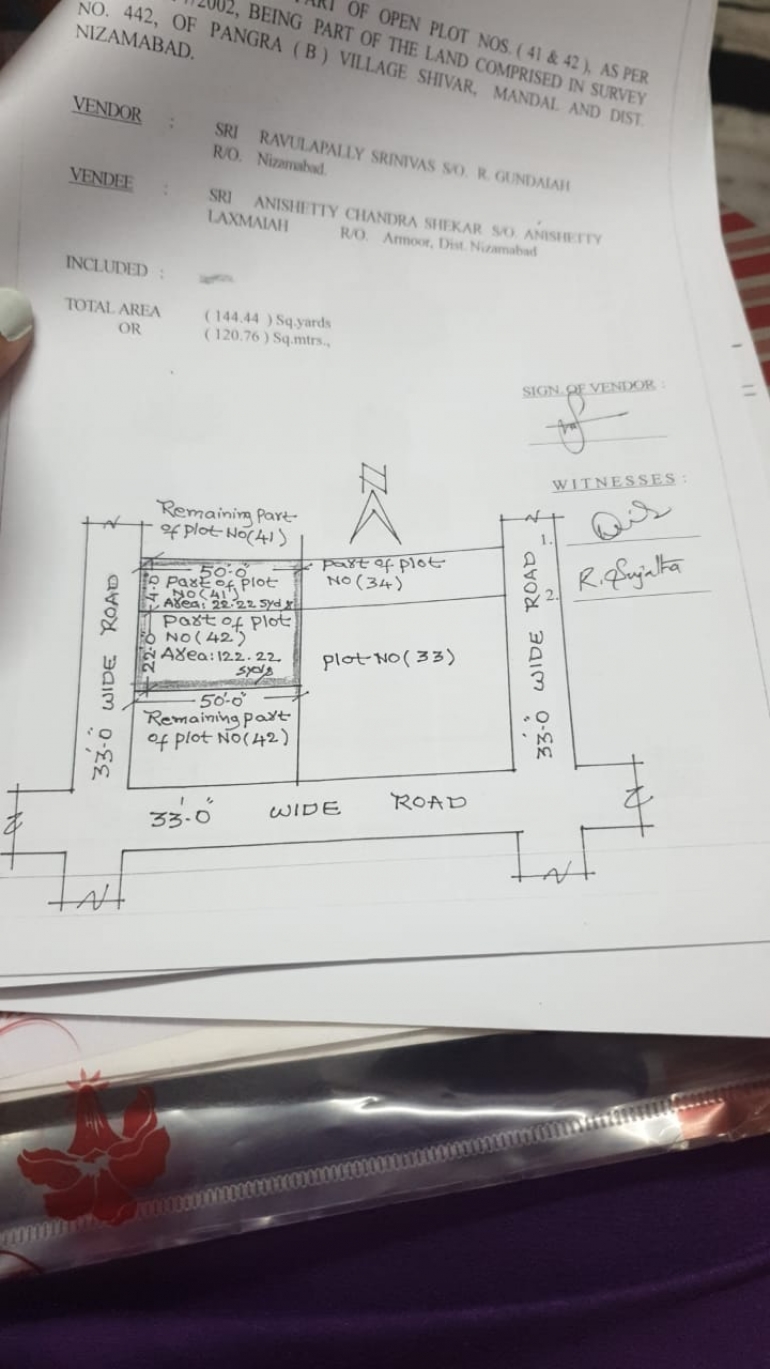 PART OF OPEN PLOT NOS. ( 41 & 42 ), AS PER
/2002, BEING PART OF THE LAND COMPRISED IN SURVEY
NO. 442, OF PANGRA ( B ) VILLAGE SHIVAR, MANDAL AND DIST.
NIZAMABAD.
VENDOR : SRI RAVULAPALLY SRINIVAS S/O. R. GUNDAIAH
R/O. Nizamabad.
VENDEE : SRI ANISHETTY CHANDRA SHEKAR S/O. ANISHETTY
LAXMAIAH R/O. Armoor, Dist. Nizamabad
INCLUDED :
TOTAL AREA ( 144.44 ) Sq.yards
OR ( 120.76 ) Sq.mtrs.,
SIGN. OF VENDOR :
WITNESSES :
1.
2. R. Sujatha
N
Remaining Part
of plot No(41)
50'-0"
Part of plot
No(41)
Area: 22.22 Syds
4'-0
Part of plot
No(42)
Area:122.22
syds
22'-0
50'-0"
Remaining part
of plot No(42)
part of plot
No(34)
plot No(33)
33'-0" WIDE ROAD
33'-0" WIDE ROAD
33'-0" WIDE ROAD